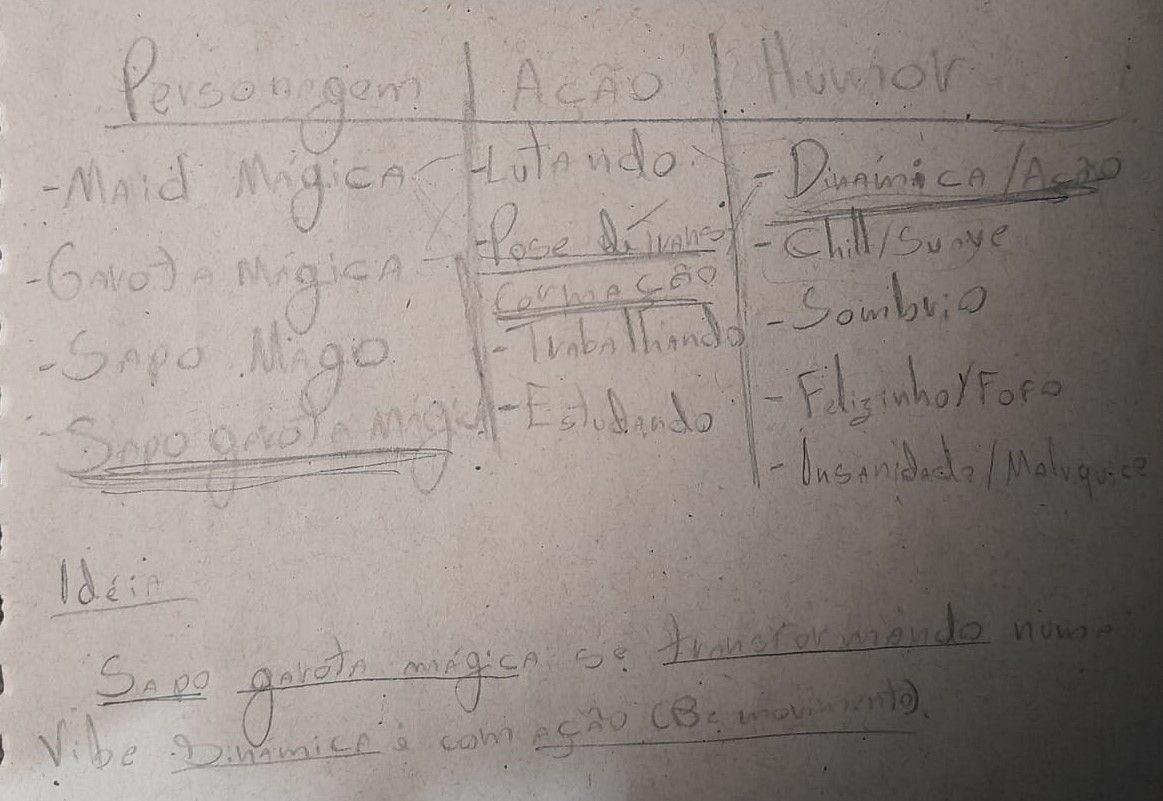 Personagem | Ação | Humor
- Maid Mágica - Lutando - Dinâmica/Ação
- Garota Mágica - Pose de trans - Chill/Suave
formação - Sombrio
- Sapo Mago - Trabalhando
- Sapo garota mágica - Estudando - Felizinho/Fofo
- Insanidade/Maluquice
Idéia
Sapo garota mágica se transformando numa
Vibe Dinamica e com ação (B: movimento).